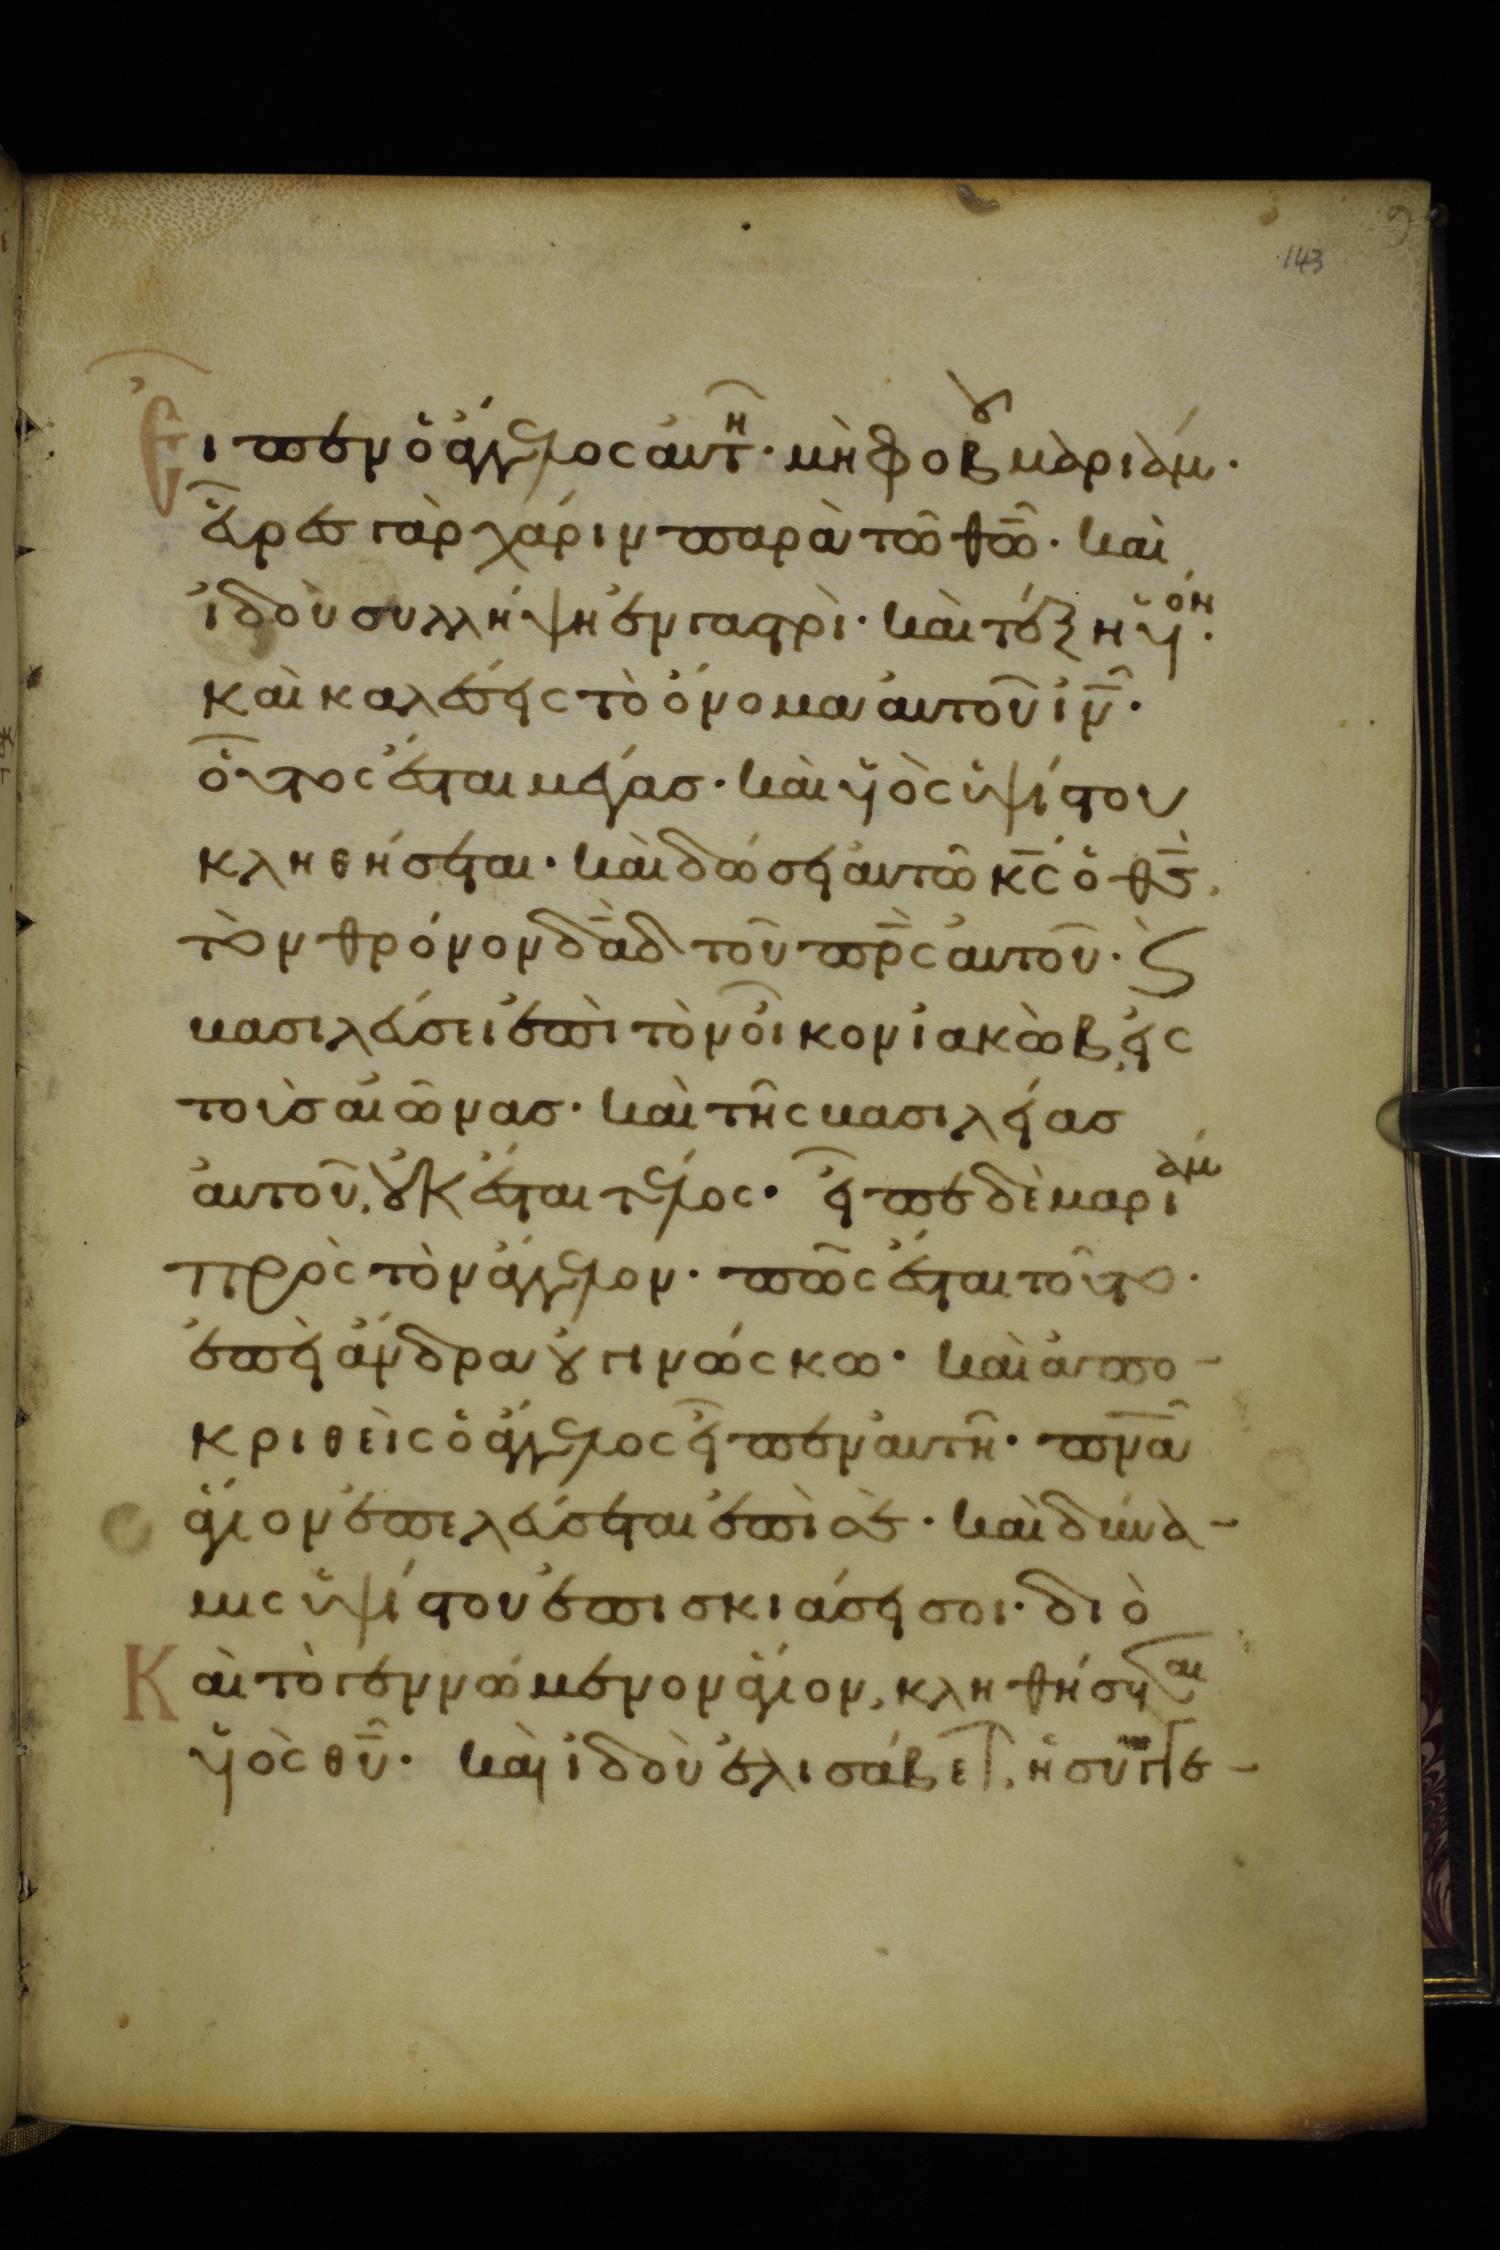 143
Εἶπεν ὁ ἄγγελος αὐτῆ· μὴ φοβοῦ μαριάμ·
εὗρες γὰρ χάριν παρὰ τῶ θῶ· καὶ
ἰδοὺ συλλήψη ἐν γαστρὶ· καὶ τέξη υἱόν·
καὶ καλέσεις τὸ ὄνομα αὐτοῦ ἰν·
οὗτος ἔσται μέγας· καὶ υἱὸς ὑψίστου
κληθήσεται· καὶ δώσει αὐτῶ κς ὁ θς,
τὸν θρόνον δαδ τοῦ πρς αὐτοῦ· ϗ
βασιλεύσει ἐπὶ τὸν οἶκον ἰακὼβ, εἰς
τοὺς αἰῶνας· καὶ τῆς βασιλείας
αὐτοῦ, οὐκ ἔσται τέλος· εἶπε δὲ μαριάμ
πρὸς τὸν ἄγγελον· πῶς ἔσται τοῦτο·
ἐπεὶ ἄνδρα οὐ γινώσκω· καὶ ἀπο-
κριθεὶς ὁ ἄγγελος εἶπεν αὐτῆ· πνα
ἅγιον ἐπελεύσεται ἐπὶ σέ· καὶ δύνα-
μις ὑψίστου ἐπισκιάσει σοι· διὸ
Καὶ τὸ γεννώμενον ἅγιον, κληθήσεται
υἱὸς θυ· καὶ ἰδοὺ ἐλισάβετ, ἡ συγγε-